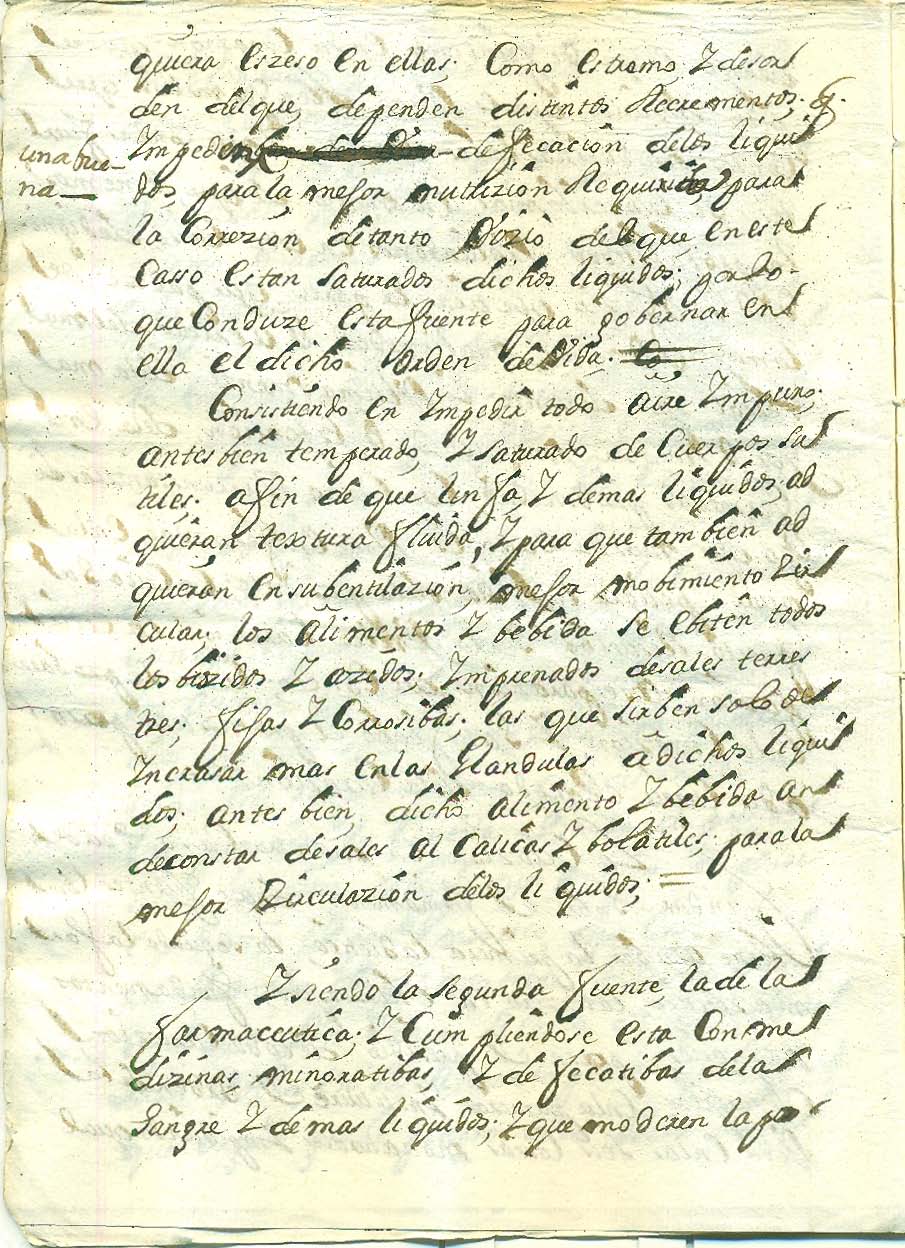 quiera eszeso en ellas; Como estremo, Y desor
den del que, dependen distintos Recrementos; q.
una bue
na
Impedi defecacion delos liqui
dos, para la mejor nutrizion Requirida, para
la Correzion de tanto Vizio del que, en este
Casso estan saturados dichos liquidos; por lo
que Conduze esta fuente para gobernar en
ella el dicho orden de Vida.
Consistiendo en Ympedir todo aire Ympuro;
antes bien temperado, Y saturado de Cuerpos su
tiles; afin de que linfa, Y demas liquidos, ad
quieran textura fluida, Y para que tambien ad
quieran en su bentilazion, mejor mobimiento Zir
cular; los alimentos Y bebida se ebiten todos
los bizidos Y azidos; Ymprenados desales terres
tres; fijas Y Corrosibas; las que sirben solo de
Yncrasar mas en las Glandulas a dichos liqui
dos; antes bien, dicho alimento Y bebida an
de constar desales al Calicas Y bolatiles; para la
mejor Zirculazion delos liquidos; =
Y siendo la segunda fuente, la de la
farmaceutica; Y Cumpliendose esta Con me
dizinas, minoratibas, Y defecatibas dela
sangre Y demas liquidos; Y que moderen la